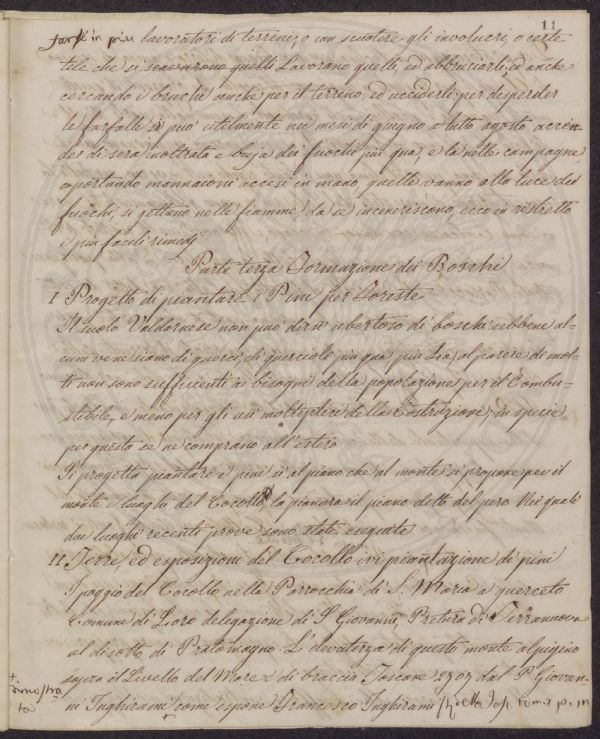 11
farsi in più lavoratori di terreni, o con scuotere gli involucri, o certe
tele che si lavorano quelli, ed abbruciarli, ed anche
cercando i bruchi anche per il terreno, ed ucciderli; per disperder
le farfalle si può utilmente nei mesi di giugno e tutto agosto accen-
der di sera inoltrata e buja dei fuochi più qua, e là nelle campagne
o portando accesi in mano, quelle vanno alla luce dei
fuochi, si gettano nelle fiamme, da se inceneriscono, ecco in ristretto
i più facili rimedj
Parte terza Formazione dei Boschi
I Progetto di piantare i Pini per Foreste
Il suolo Valdarnese non può dirsi ubertoso di boschi sebbene al-
cuni ve ne siano di querci, di querciole più qua più là, al parere di mol-
ti non sono sufficenti ai bisogni della popolazione per il Combu-
stibile, e meno per gli usi moltiplici della Costruzione, in specie
per questa se ne comprano all'estero
Si progetta piantare i pini sì al piano che al monte si propone per il
monte i luoghi del Cocollo, la pianara il piano detto del pero Nei quali
due luoghi recenti prove sono state eseguite
II Terre, ed esposizioni del Cocollo ivi piantazione di pini
I poggio del Cocollo nella Parrocchia di S. Maria a querceto
Comune di Loro delegazione di S Giovanni, Pretura di Terranuova
al disotto di Pratomagno L'elevatezza di questo monte
sopra il Livello del Mare è di braccia Toscane dal P. Giovan-
ni Inghirami come espone Francesco Inghirami
+
dimostra
ta